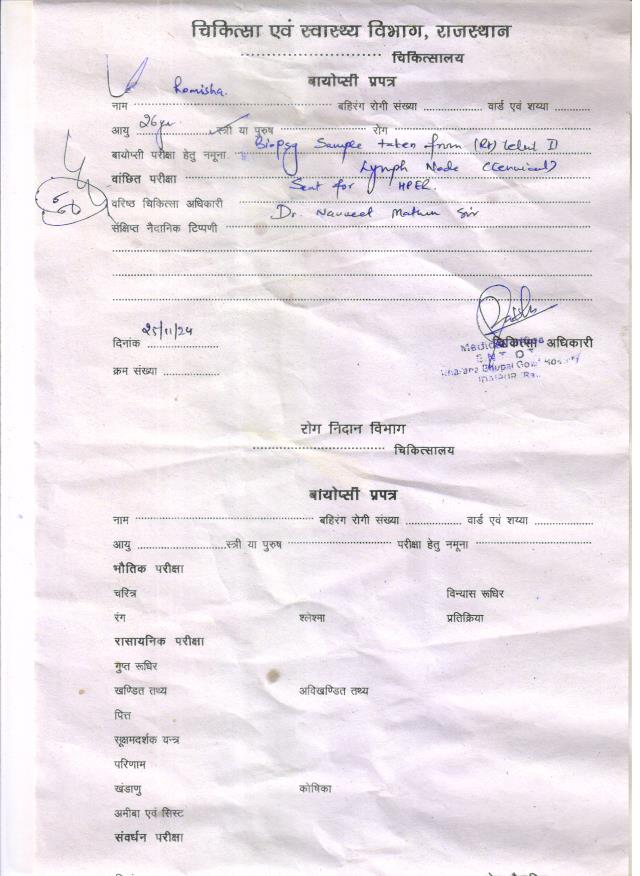 चिकित्सा एवं स्वास्थ्य विभाग, राजस्थान
चिकित्सालय
बायोप्सी प्रपत्र
नाम Romisha. बहिरंग रोगी संख्या वार्ड एवं शय्या
आयु 26yr. स्त्री या पुरुष रोग
बायोप्सी परीक्षा हेतु नमूना. Biopsy Sample taken from (Rt) level II
वांछित परीक्षा Lymph Node (Cervical)
Sent for HPER.
वरिष्ठ चिकित्सा अधिकारी Dr. Navneet Mathur Sir
संक्षिप्त नैदानिक टिप्पणी
दिनांक 25/11/24
चिकित्सा अधिकारी
क्रम संख्या
रोग निदान विभाग
चिकित्सालय
बायोप्सी प्रपत्र
नाम बहिरंग रोगी संख्या वार्ड एवं शय्या
आयु स्त्री या पुरुष परीक्षा हेतु नमूना
भौतिक परीक्षा
चरित्र विन्यास रूधिर
रंग श्लेश्मा प्रतिक्रिया
रासायनिक परीक्षा
गुप्त रूधिर
खण्डित तथ्य अविखण्डित तथ्य
पित्त
सूक्षमदर्शक यन्त्र
परिणाम
खंडाणु कोषिका
अमीबा एवं सिस्ट
संवर्धन परीक्षा